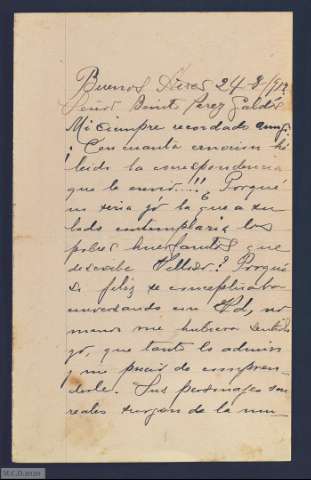 Buenos Aires 24-8/912
Señor Benito Perez Galdós
Mi siempre recordado amigo:
¡Con cuanta emocion hé
leido la correspondencia
que le envió...!! ¿Porqué
no sería yó la que a su
lado contemplaria los
pobres huerfanitos que
describe Vd? Porqué
si feliz se conceptuaba
conversando con Vd, no
menos me hubiera sentido
yó, que tanto lo admiro
y me precio de compren-
derle. Sus personajes son
reales surgen de la mu-
M.C.D. 2020